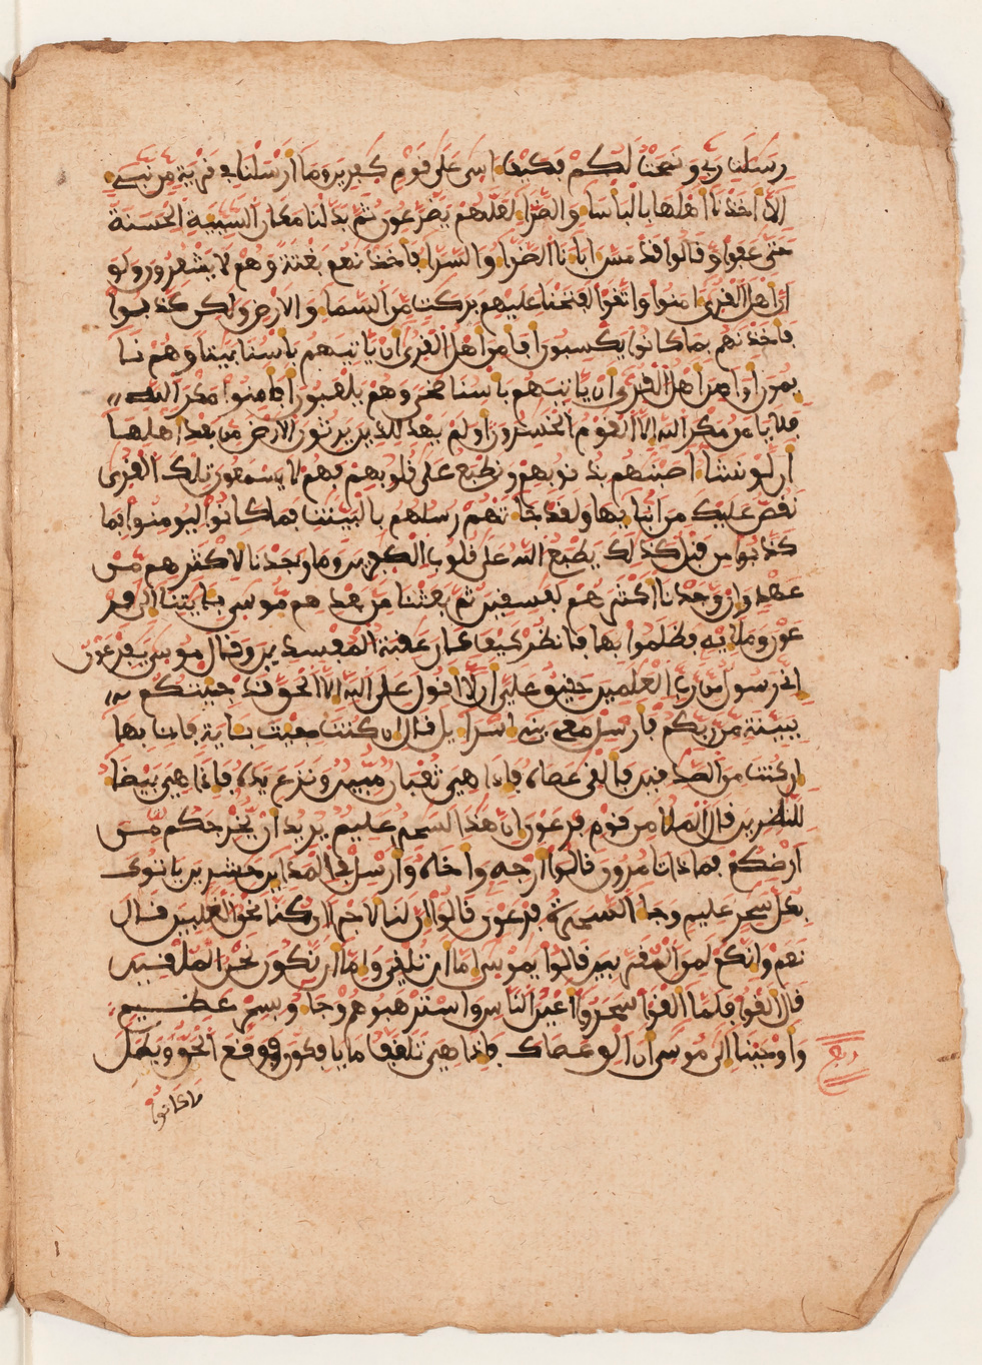 رسلت ربي ونصحت لكم فكيف اسى على قوم كفرين وما ارسلنا في قرية من نبي
الا اخذنا اهلها بالباسا والضرا لعلهم يضرعون ثم بدلنا مكان السيية الحسنة
حتى عفوا وقالوا قد مس ابانا الضرا والسرا فاخذنهم بغتة وهم لا يشعرون ولو
ان اهل القرى امنوا واتقوا لفتحنا عليهم بركت من السما والارض ولكن كذبوا
فاخذنهم بما كانوا يكسبون افامن اهل القرى ان ياتيهم باسنا بيتا وهم نا
يمون اوامن اهل القرى ان ياتيهم باسنا ضحى وهم يلعبون افامنوا مكر الله
فلا يامن مكر الله الا القوم الخسرون اولم يهد للذين يرثون الارض من بعد اهلها
ان لو نشا اصبنهم بذنوبهم ونطبع على قلوبهم فهم لا يسمعون تلك القرى
نقص عليك من انبايها ولقد جاتهم رسلهم بالبينت فما كانوا ليومنوا بما
كذبوا من قبل كذلك يطبع الله على قلوب الكفرين وما وجدنا لاكثرهم من
عهد وان وجدنا اكثرهم لفسقين ثم بعثنا من بعدهم موسى بايتنا الى فر
عون وملايه فظلموا بها فانظر كيف كان عقبة المفسدين وقال موسى يفرعون
اني رسول من رب العلمين حقيق علي ان لا اقول على الله الا الحق قد جيتكم
ببينة من ربكم فارسل معي بني اسرايل قال ان كنت جيت باية فات بها
ان كنت من الصدقين فالقى عصاه فاذا هي ثعبان مبين ونزع يده فاذا هي بيضا
للنظرين قال الملا من قوم فرعون ان هذا لسحر عليم يريد ان يخرجكم من
ارضكم فماذا تامرون قالوا ارجه واخاه وارسل في المداين حشرين ياتوك
بكل سحر عليم وجا السحرة فرعون قالوا ان لنا لاجرا ان كنا نحن الغلبين قال
نعم وانكم لمن المقربين قالوا يموسى اما ان تلقي واما ان نكون نحن الملقين
قال القوا فلما القوا سحروا اعين الناس واسترهبوهم وجاو بسحر عظيم
واوحينا الى موسى ان الق عصاك فاذا هي تلقف ما يافكون فوقع الحق وبطل
ربع
ما كانوا